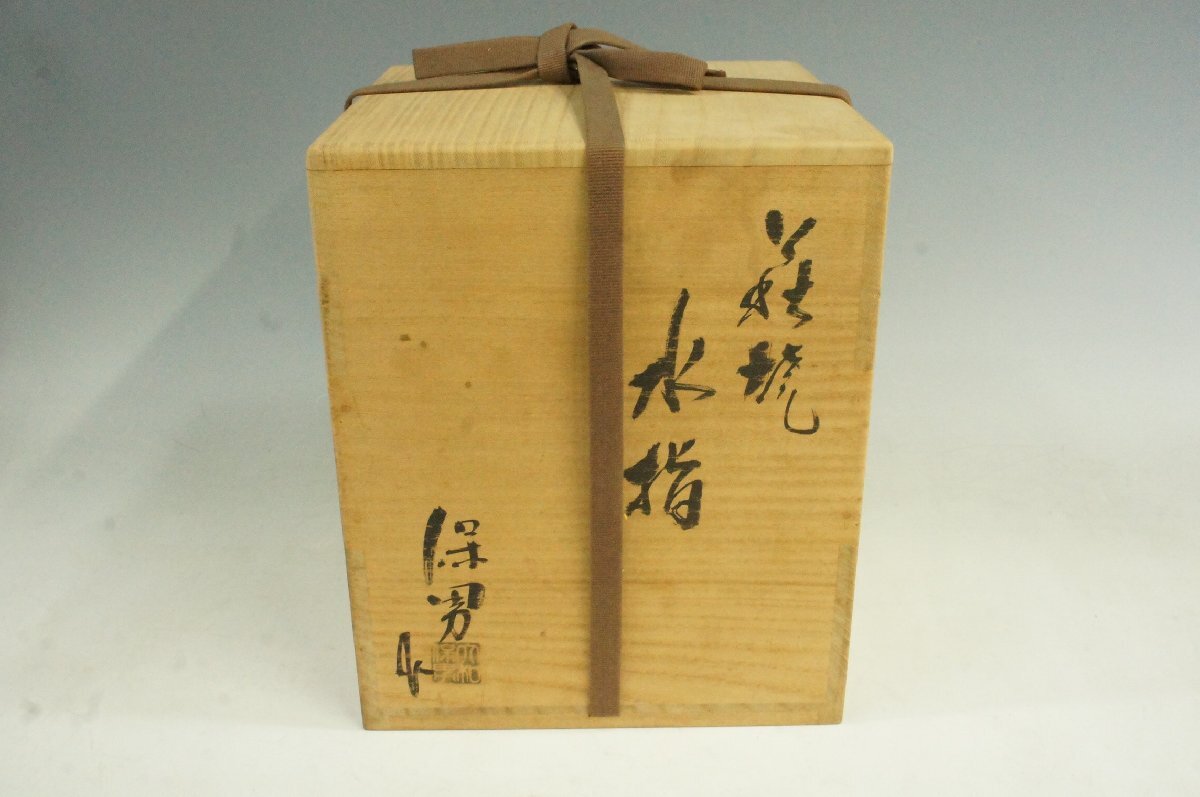 萩焼
水指
保男 作